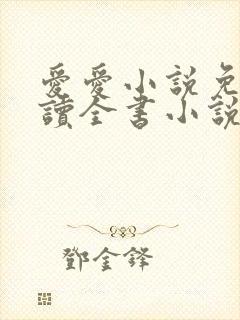 愛愛小說免
讀全書小說
鄧金鋒